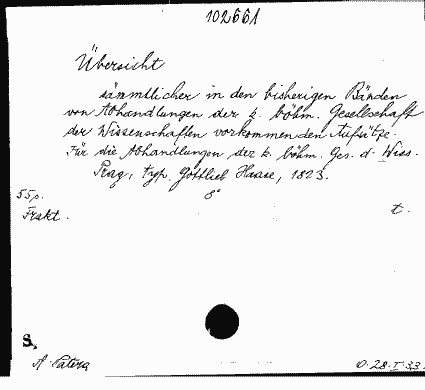 102661
Übersicht
sämmtlicher in den bisherigen Bänden
von Abhandlungen der k. böhm. Gesellschaft
der Wissenschaften vorkommenden Aufsätze.
Für die Abhandlungen der k. böhm. Ges. d. Wiss.
Prag, typ. Gottlieb Haase, 1823.
55 p. 8°
Frakt. t.
S.
A. Patera O-28-I-33.